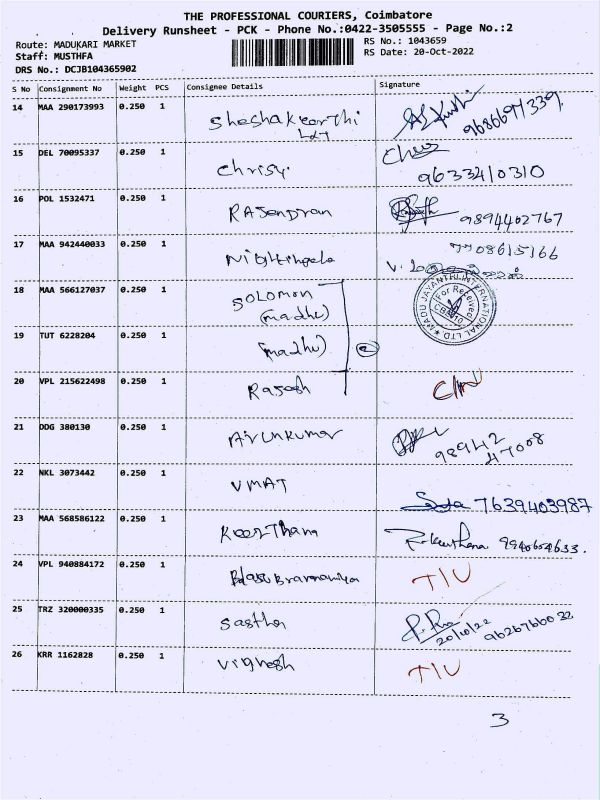 THE PROFESSIONAL COURIERS, Coimbatore
Delivery Runsheet - PCK - Phone No.:0422-3505555 - Page No.:2
Route: MADUKARI MARKET
RS No.: 1043659
Staff: MUSTHFA
RS Date: 20-Oct-2022
DRS No.: DCJB104365902
S No Consignment No Weight PCS Consignee Details Signature
14 MAA 290173993 0.250 1 Sheshakeerthi 9686697339
15 DEL 70095337 0.250 1 Chrisy. 9633410310
16 POL 1532471 0.250 1 RAJendran 9894402767
17 MAA 942440033 0.250 1 Nightingale 7708615166
18 MAA 566127037 0.250 1 SOLOMON
(madhu)
MADU JAYANTHI INTERNATIONAL LTD
For Received
19 TUT 6228204 0.250 1 (madhu) 2
20 VPL 215622498 0.250 1 Rajesh
21 DDG 380130 0.250 1 Arunkumar 98942
47008
22 NKL 3073442 0.250 1 VMAT 7639403987
23 MAA 568586122 0.250 1 Keerthana
24 VPL 940884172 0.250 1 T/U
25 TRZ 320000335 0.250 1 Sastha
20/10/22
26 KRR 1162828 0.250 1 Vignesh T/U
3